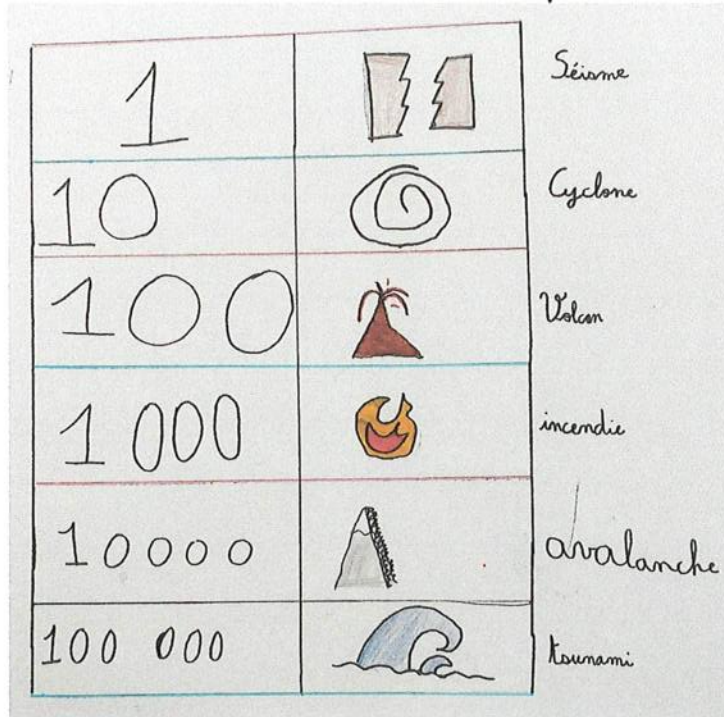 1 Séisme
10 Cyclone
100 Volcan
1 000 incendie
10000 avalanche
100 000 tsunami